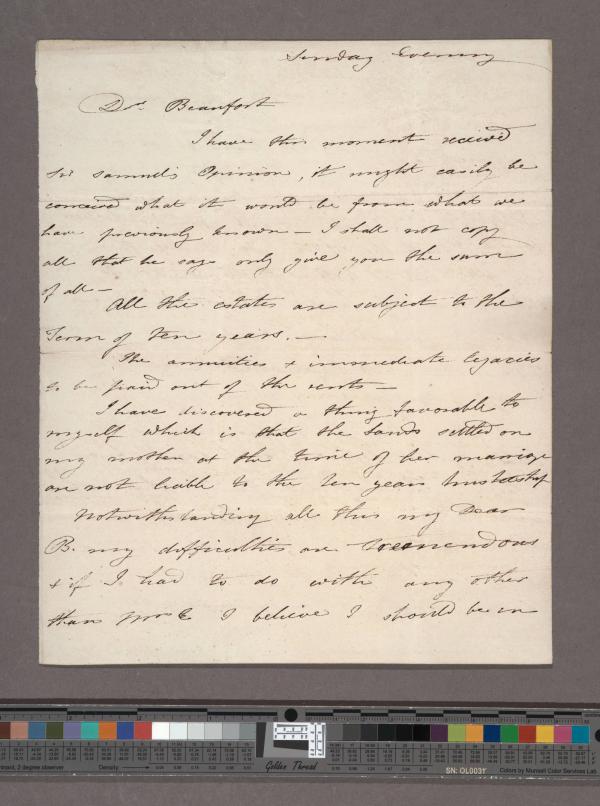 Sunday Evening
Dr. Beaufort
I have this moment received
Sir Samuel's Opinion, it might easily be
conceived what it would be from what we
have previously known - I shall not copy
all that he says only give you the sum
of all -
All the estates are subject to the
Term of ten years. -
The annuities + immediate legacies
to be paid out of the rents -
I have discovered a thing favorable to
myself which is that the lands settled on
my mother at the time of her marriage
are not liable to the ten years
Notwithstanding all this my Dear
B. my difficulties are tremendous
+ if I had to do with any other
than Mrs E I believe I should be in
Golden Thread
SN: OL0031
Colors by Munsell Color Services Lab
2 degree observer
Density